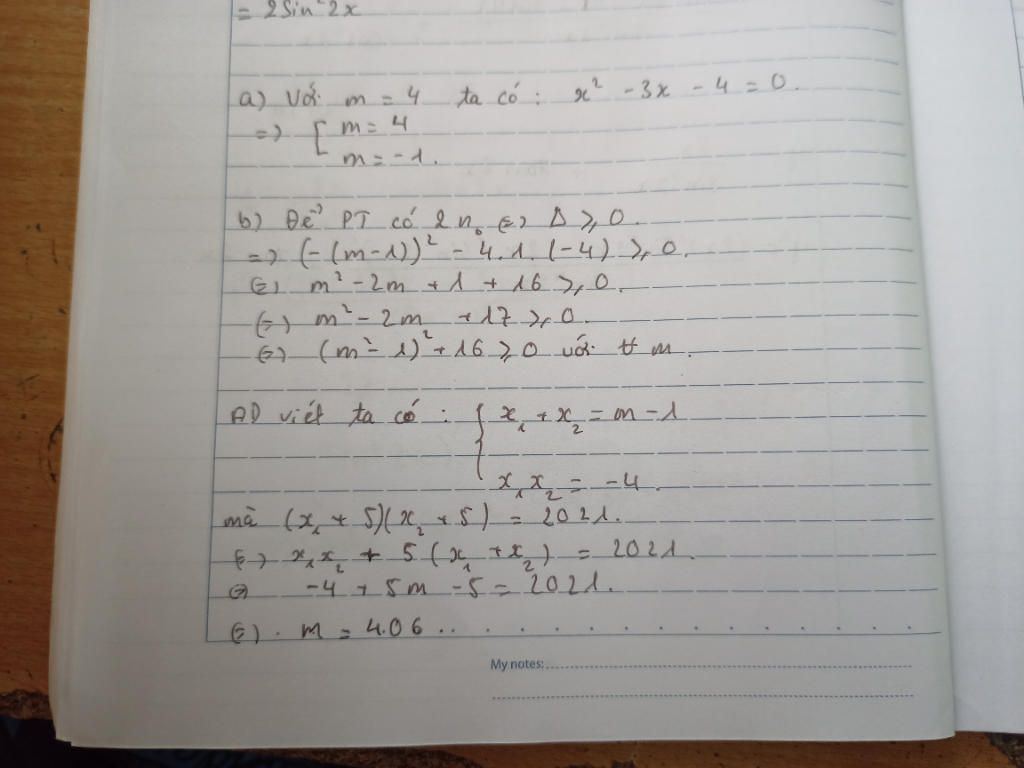 = 2Sin² 2x
a) Với m = 4 ta có : x² - 3x - 4 = 0.
=> [ m = 4
m = -1.
b) Để PT có 2 n₀ <=> Δ ≥ 0.
=> (-(m-1))² - 4.1.(-4) ≥ 0.
<=> m² - 2m + 1 + 16 ≥ 0.
<=> m² - 2m + 17 ≥ 0.
<=> (m² - 1)² + 16 ≥ 0 với ∀ m.
AD viét ta có : { x₁ + x₂ = m - 1
x₁ x₂ = -4.
mà (x₁ + 5)(x₂ + 5) = 2021.
<=> x₁x₂ + 5(x₁ + x₂) = 2021.
<=> -4 + 5m - 5 = 2021.
<=> m = 406
My notes: